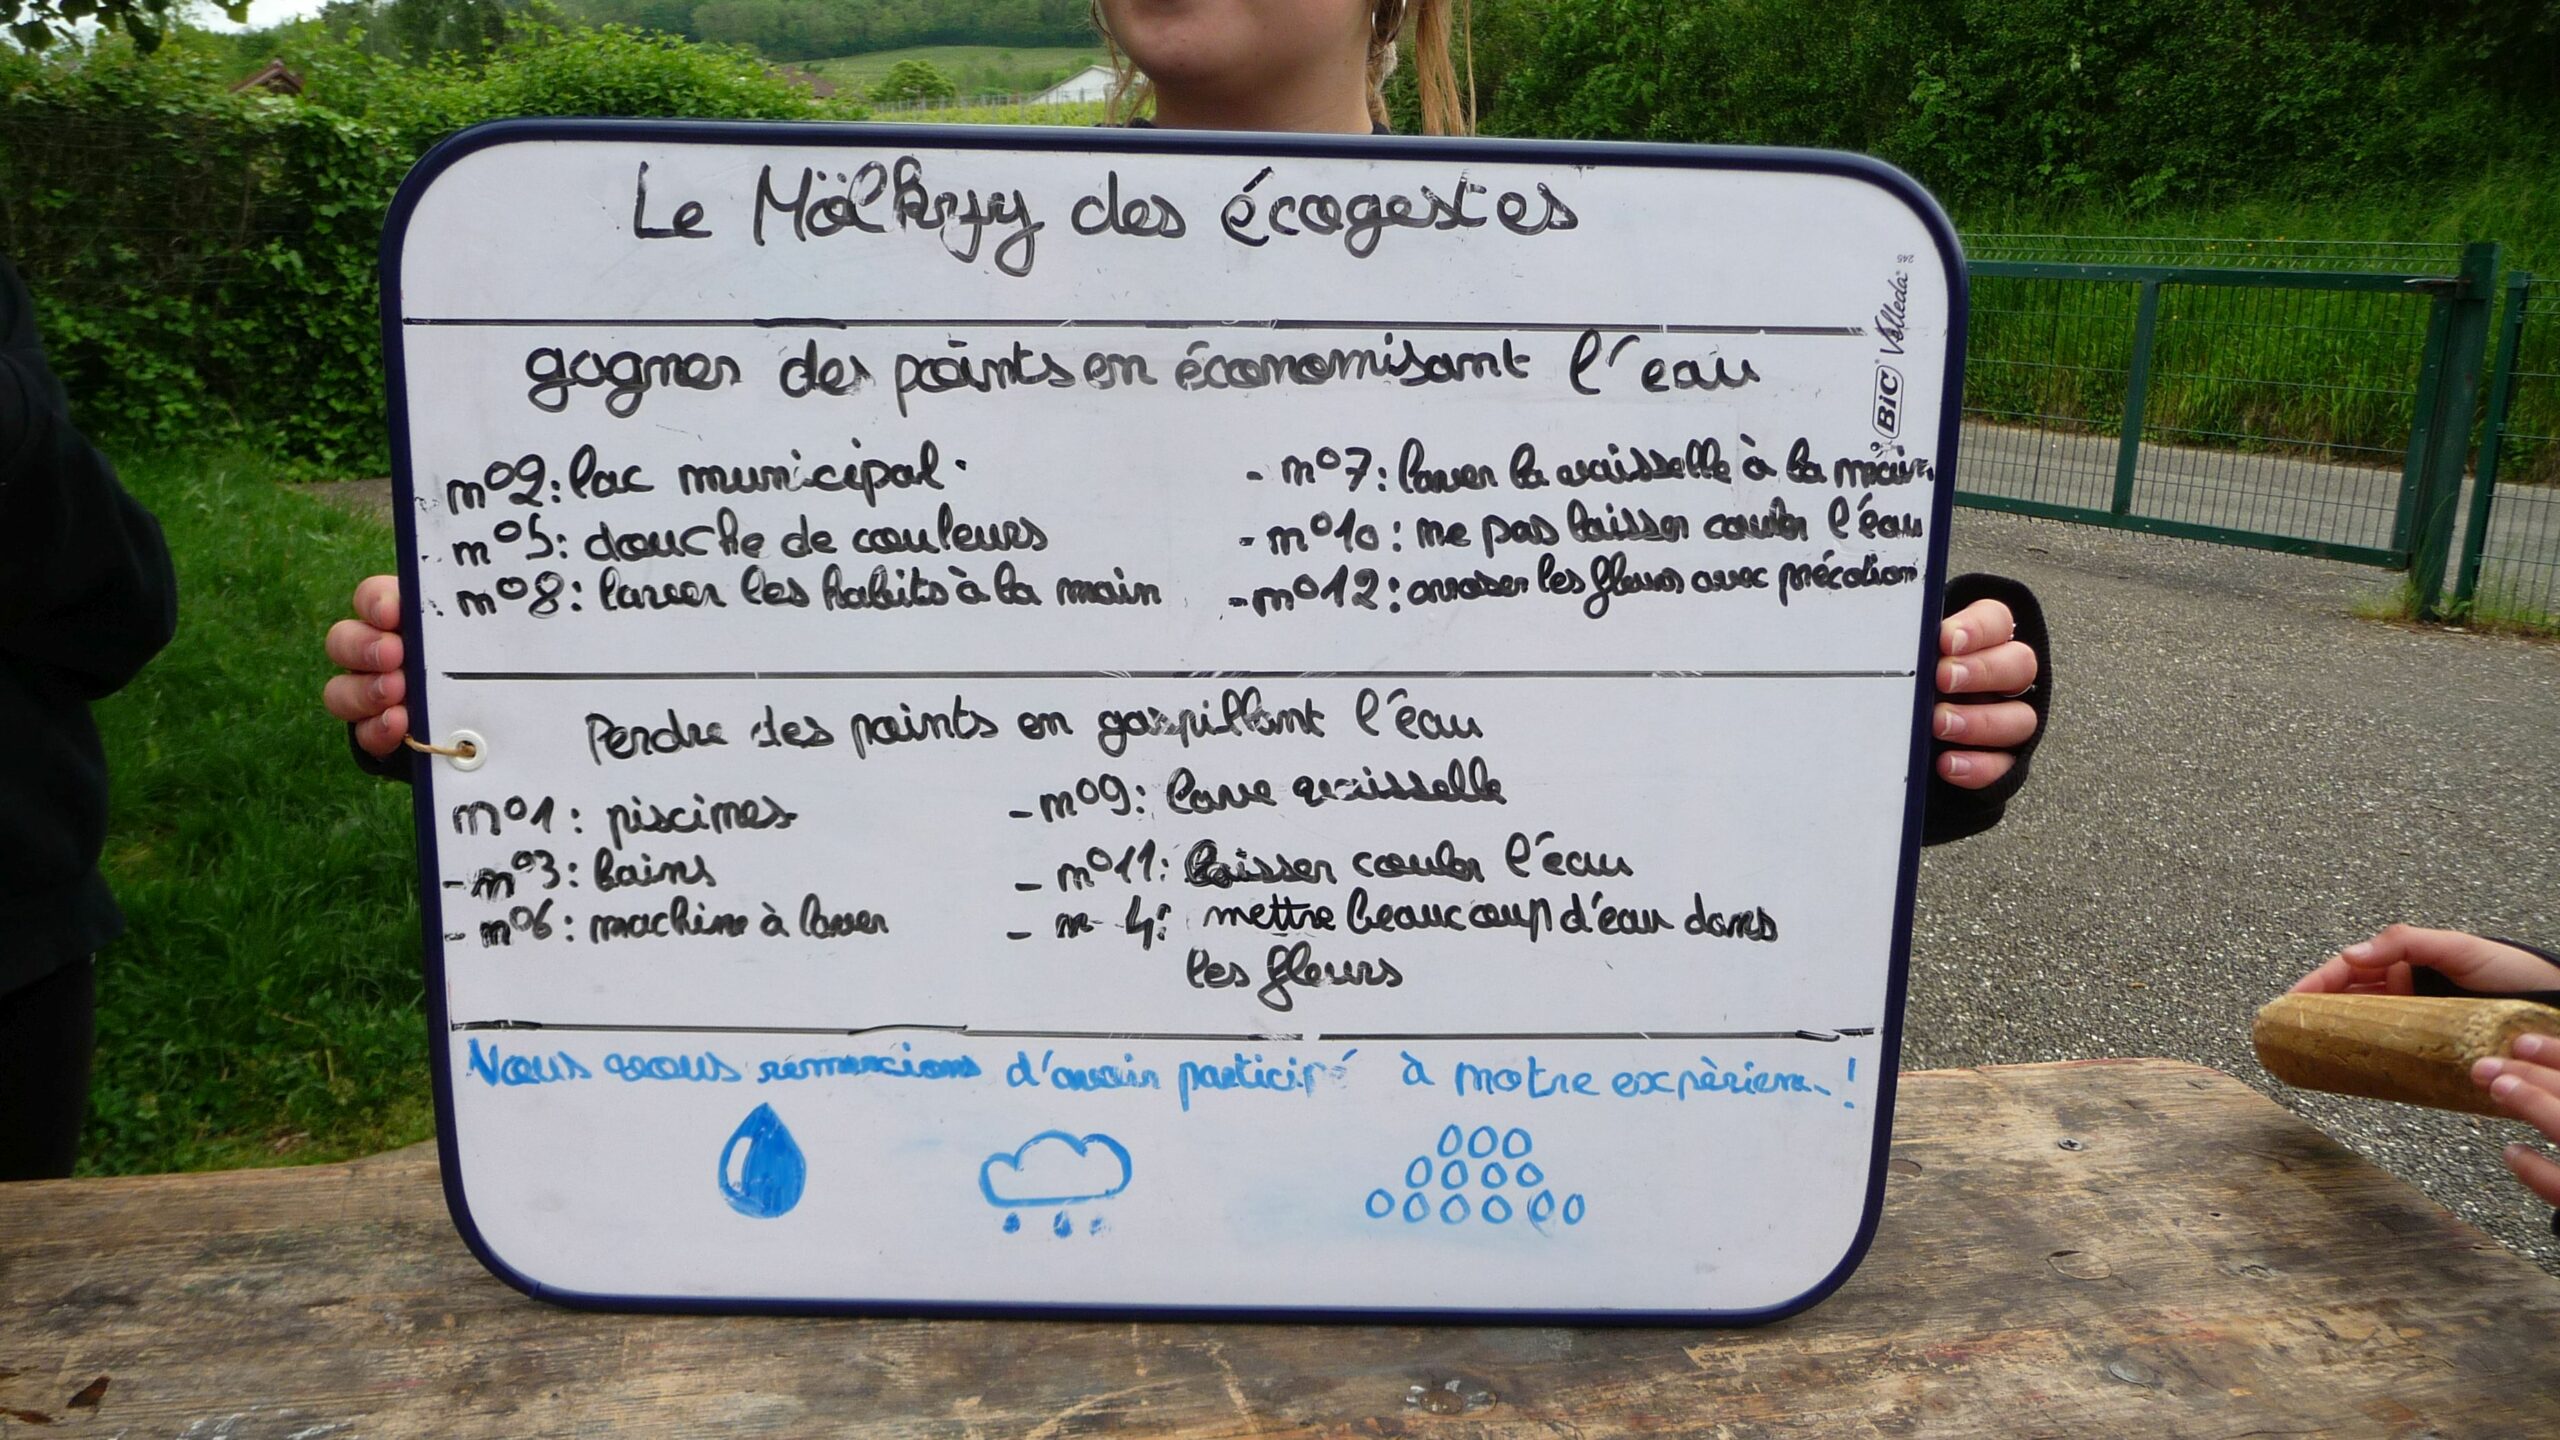 Le Mölkyy des écogestes
gagner des points en économisant l'eau
n°2: lac municipal.
- n°5: douche de couleurs
- n°8: laver les habits à la main
- n°7: laver la vaisselle à la main
- n°10: ne pas laisser couler l'éau
- n°12: arroser les fleurs avec précotion
Perdre des points en gaspillant l'éau
n°1: piscines
- n°3: bains
- n°6: machine à laver
- n°9: lave vaisselle
- n°11: laisser couler l'éau
- n 4: mettre beaucoup d'éau dans
les fleurs
Nous vous remercions d'avoir participé à notre expèrience !
BIC Velleda
245